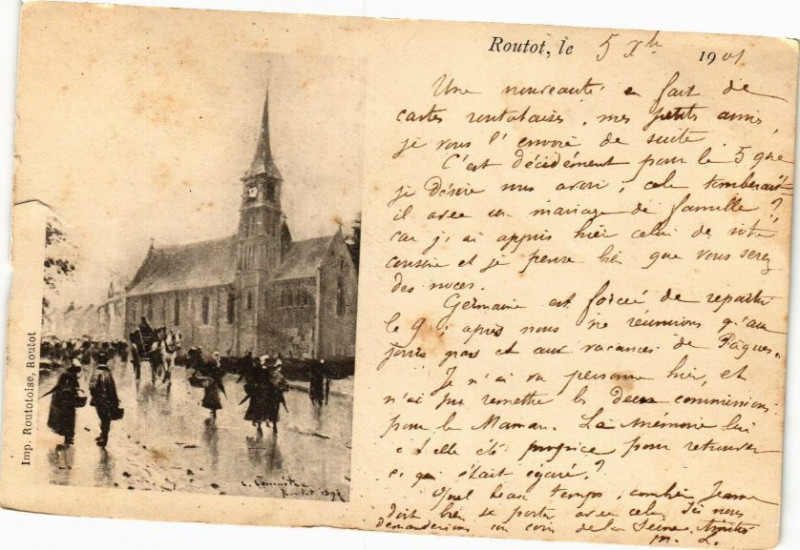 Routot, le 5 Xbre 1901
Une nouveauté en fait de
cartes routotaises, mes petits amis,
je vous l'envoie de suite
C'est décidément pour le 5 que
je désire vous avoir; cela tomberait-
il avec un mariage de famille?
car j'ai appris hier celui de votre
cousine et je pense bien que vous serez
des noces.
Germaine est forcée de repartir
le 9; après nous ne réunirons qu'aux
jours gras et aux vacances de Pâques.
Je n'ai vu personne hier, et
n'ai pu remettre les deux commissions
pour la Maman. La mémoire lui
a t'elle été propice pour retrouver
ce qui était égaré?
Quel beau temps, combien Jeanne
doit bien se porter avec cela, Ici nous
demanderions un coin de la Seine. Amitiés
M. L.
Imp. Routotoise, Routot
Routot 1897